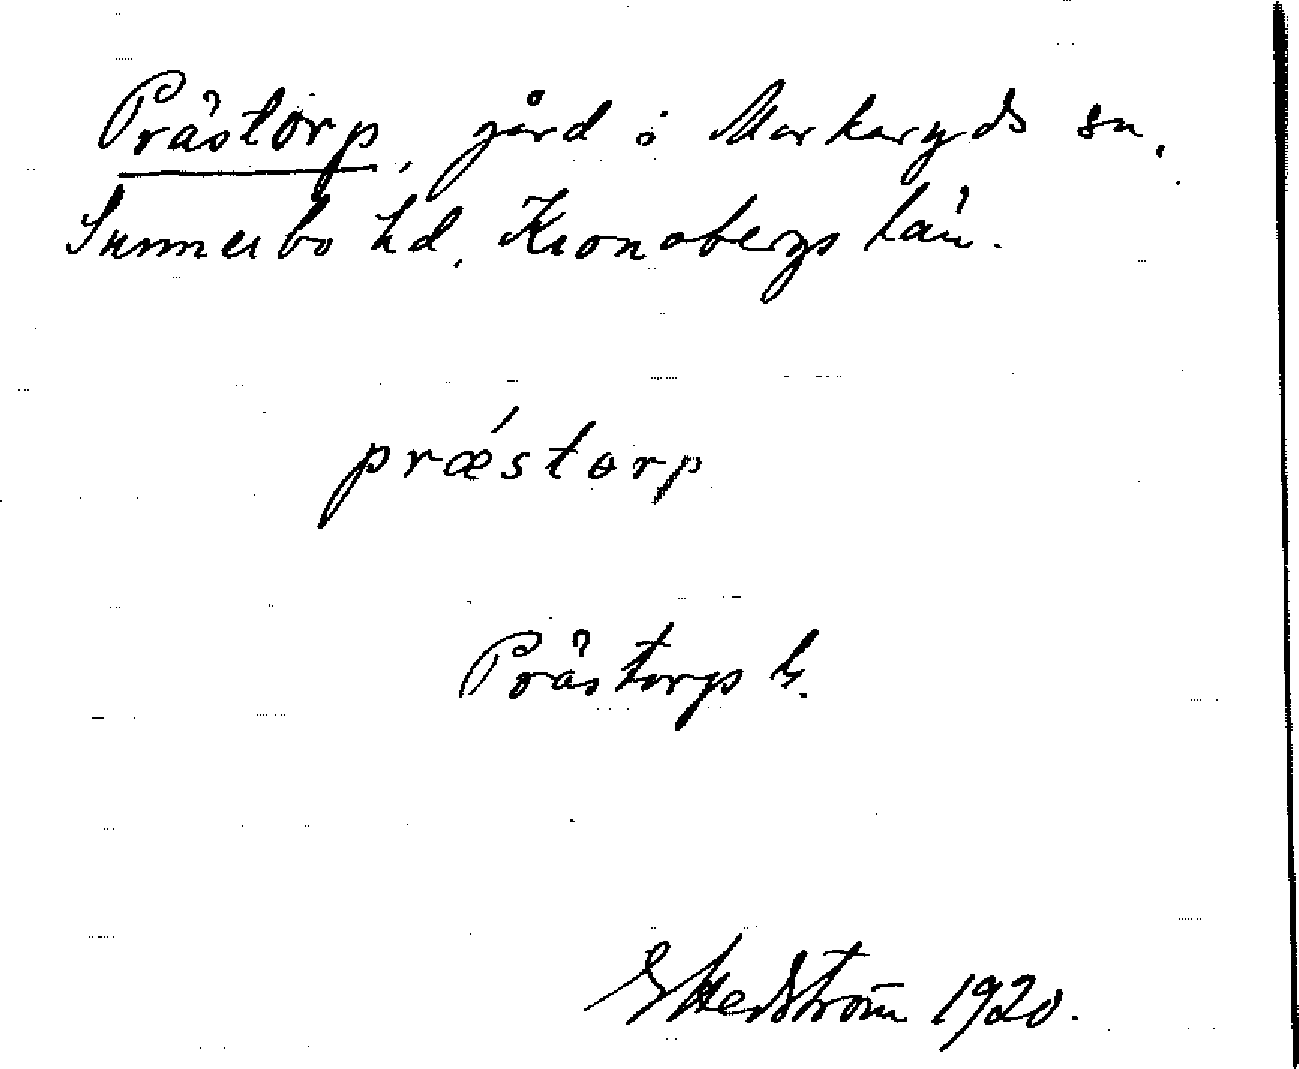 Prästorp, gård i Markaryds sn,
Sunnerbo hd, Kronobergs län.
prǽstorp
Prästorp G.
G Hedström 1920.